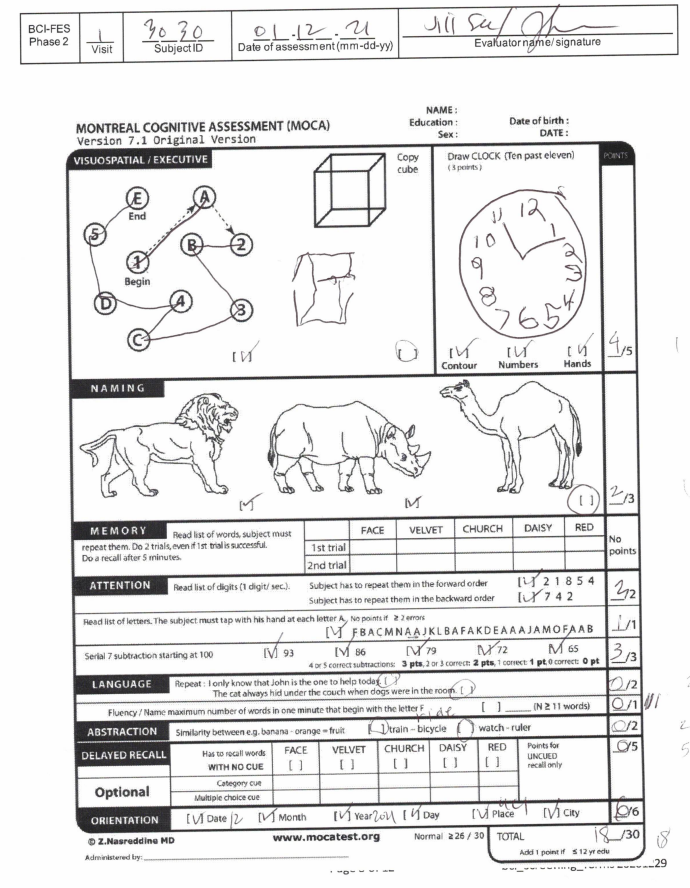 BCI-FES
Phase 2
1
Visit
3030
Subject ID
01.12.21
Date of assessment (mm-dd-yy)
Evaluator name/ signature
NAME :
Education :
Sex :
Date of birth :
DATE :
MONTREAL COGNITIVE ASSESSMENT (MOCA)
Version 7.1 Original Version
VISUOSPATIAL / EXECUTIVE
Copy cube
Draw CLOCK (Ten past eleven)
(3 points)
POINTS
E
End
A
5
B
2
1
Begin
D
4
3
C
[✓]
[ ]
11 12 1
10 2
9 3
8 4
7 6 5
[✓] [✓] [✓]
Contour Numbers Hands
4/5
NAMING
[✓] [✓] [ ]
2/3
MEMORY
Read list of words, subject must
repeat them. Do 2 trials, even if 1st trial is successful.
Do a recall after 5 minutes.
FACE VELVET CHURCH DAISY RED
1st trial
2nd trial
No points
ATTENTION
Read list of digits (1 digit/ sec.).
Subject has to repeat them in the forward order [✓] 2 1 8 5 4
Subject has to repeat them in the backward order [✓] 7 4 2
2/2
Read list of letters. The subject must tap with his hand at each letter A. No points if ≥ 2 errors
[✓] F B A C M N A A J K L B A F A K D E A A A J A M O F A A B
1/1
Serial 7 subtraction starting at 100 [✓] 93 [✓] 86 [✓] 79 [✓] 72 [✓] 65
4 or 5 correct subtractions: 3 pts, 2 or 3 correct: 2 pts, 1 correct: 1 pt, 0 correct: 0 pt
3/3
LANGUAGE
Repeat : I only know that John is the one to help today. [ ]
The cat always hid under the couch when dogs were in the room. [ ]
0/2
Fluency / Name maximum number of words in one minute that begin with the letter F [ ] ____ (N ≥ 11 words)
0/1
ABSTRACTION
Similarity between e.g. banana - orange = fruit [ ] train – bicycle [ ] watch - ruler
0/2
DELAYED RECALL
Has to recall words
WITH NO CUE
FACE VELVET CHURCH DAISY RED
[ ] [ ] [ ] [ ] [ ]
Points for UNCUED recall only
0/5
Optional
Category cue
Multiple choice cue
ORIENTATION
[✓] Date 12 [✓] Month [✓] Year 2021 [✓] Day [✓] Place [✓] City
6/6
© Z.Nasreddine MD
www.mocatest.org
Normal ≥ 26 / 30
TOTAL
18/30
18
Add 1 point if ≤ 12 yr edu
Administered by: